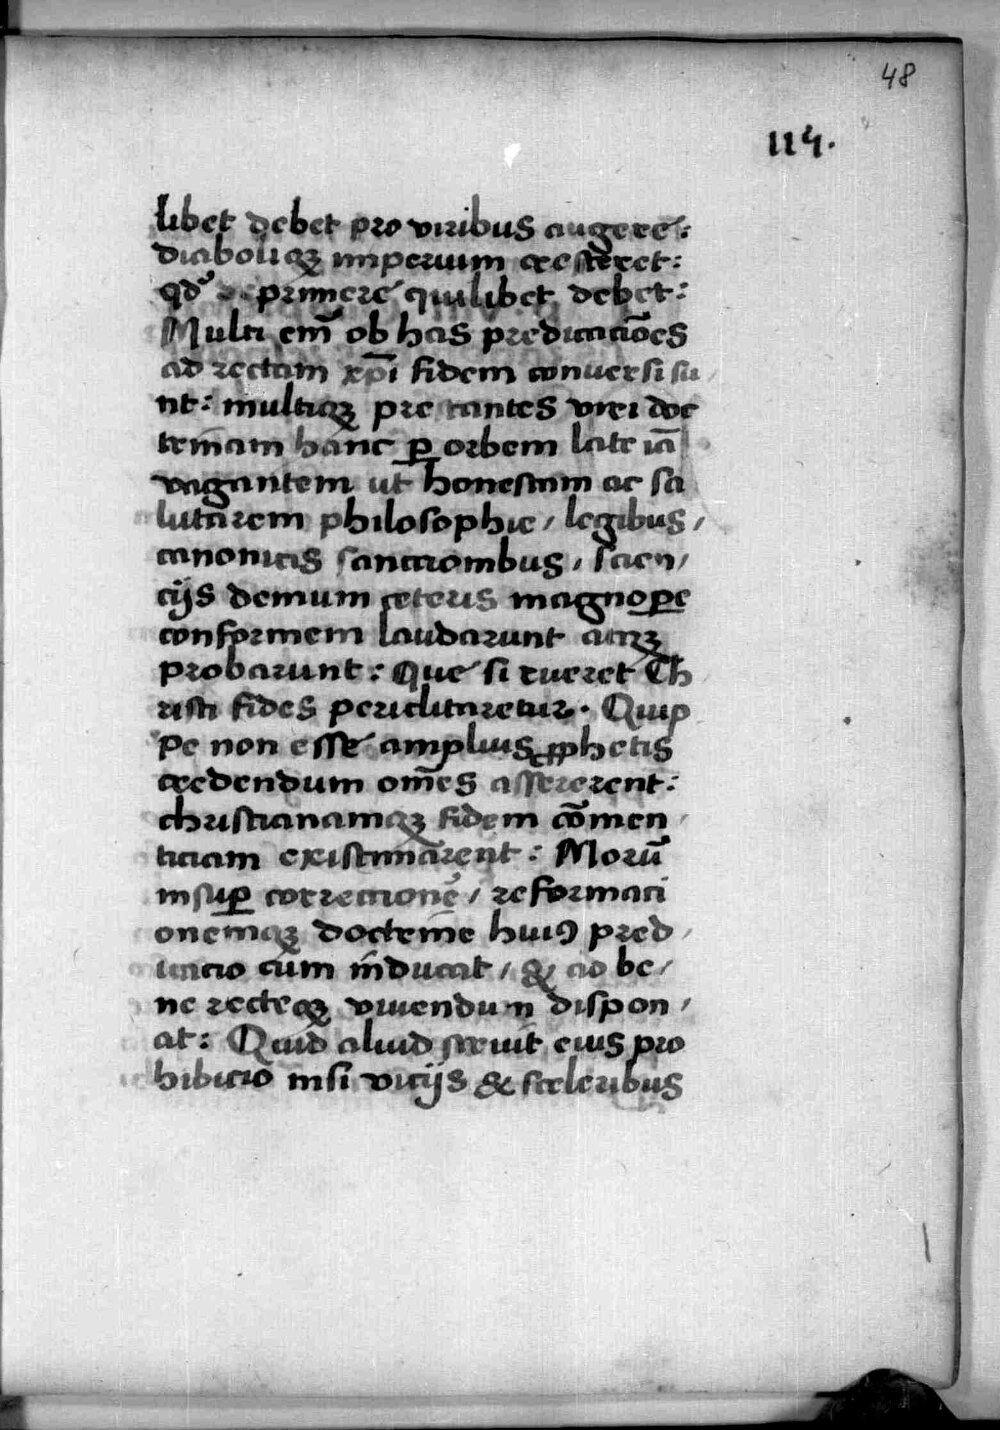 48
114.
libet debet pro viribus augere:
diaboliqꝫ imperium cresceret:
qd' deprimere quilibet debet:
Multi em̄ ob has predicac̄iōes
ad rectam xp̄i fidem conuersi su
nt: multiqꝫ prestantes viri doc
trinam hanc ꝑ orbem late iā
vagantem ut honestam ac sa
lutarem philosophie / legibus /
canonicis sanctionibus / scien /
cijs demum ceteris magnoꝑe
conformem laudarunt atqꝫ
probarunt: Que si rueret Ch
risti fides periclitaretur. Quip
pe non esse amplius ꝓphetis
credendum om̄es assererent:
christianamqꝫ fidem cōmen /
ticiam existimarent: Morū
insuꝑ correctionē / reformaci
onemqꝫ doctrine huiꝰ pred /
icacio cum inducat / & ad be /
ne recteqꝫ viuendum dispon /
at: Quid aliud sciuit eius pro
hibicio nisi vicijs & sceleribus